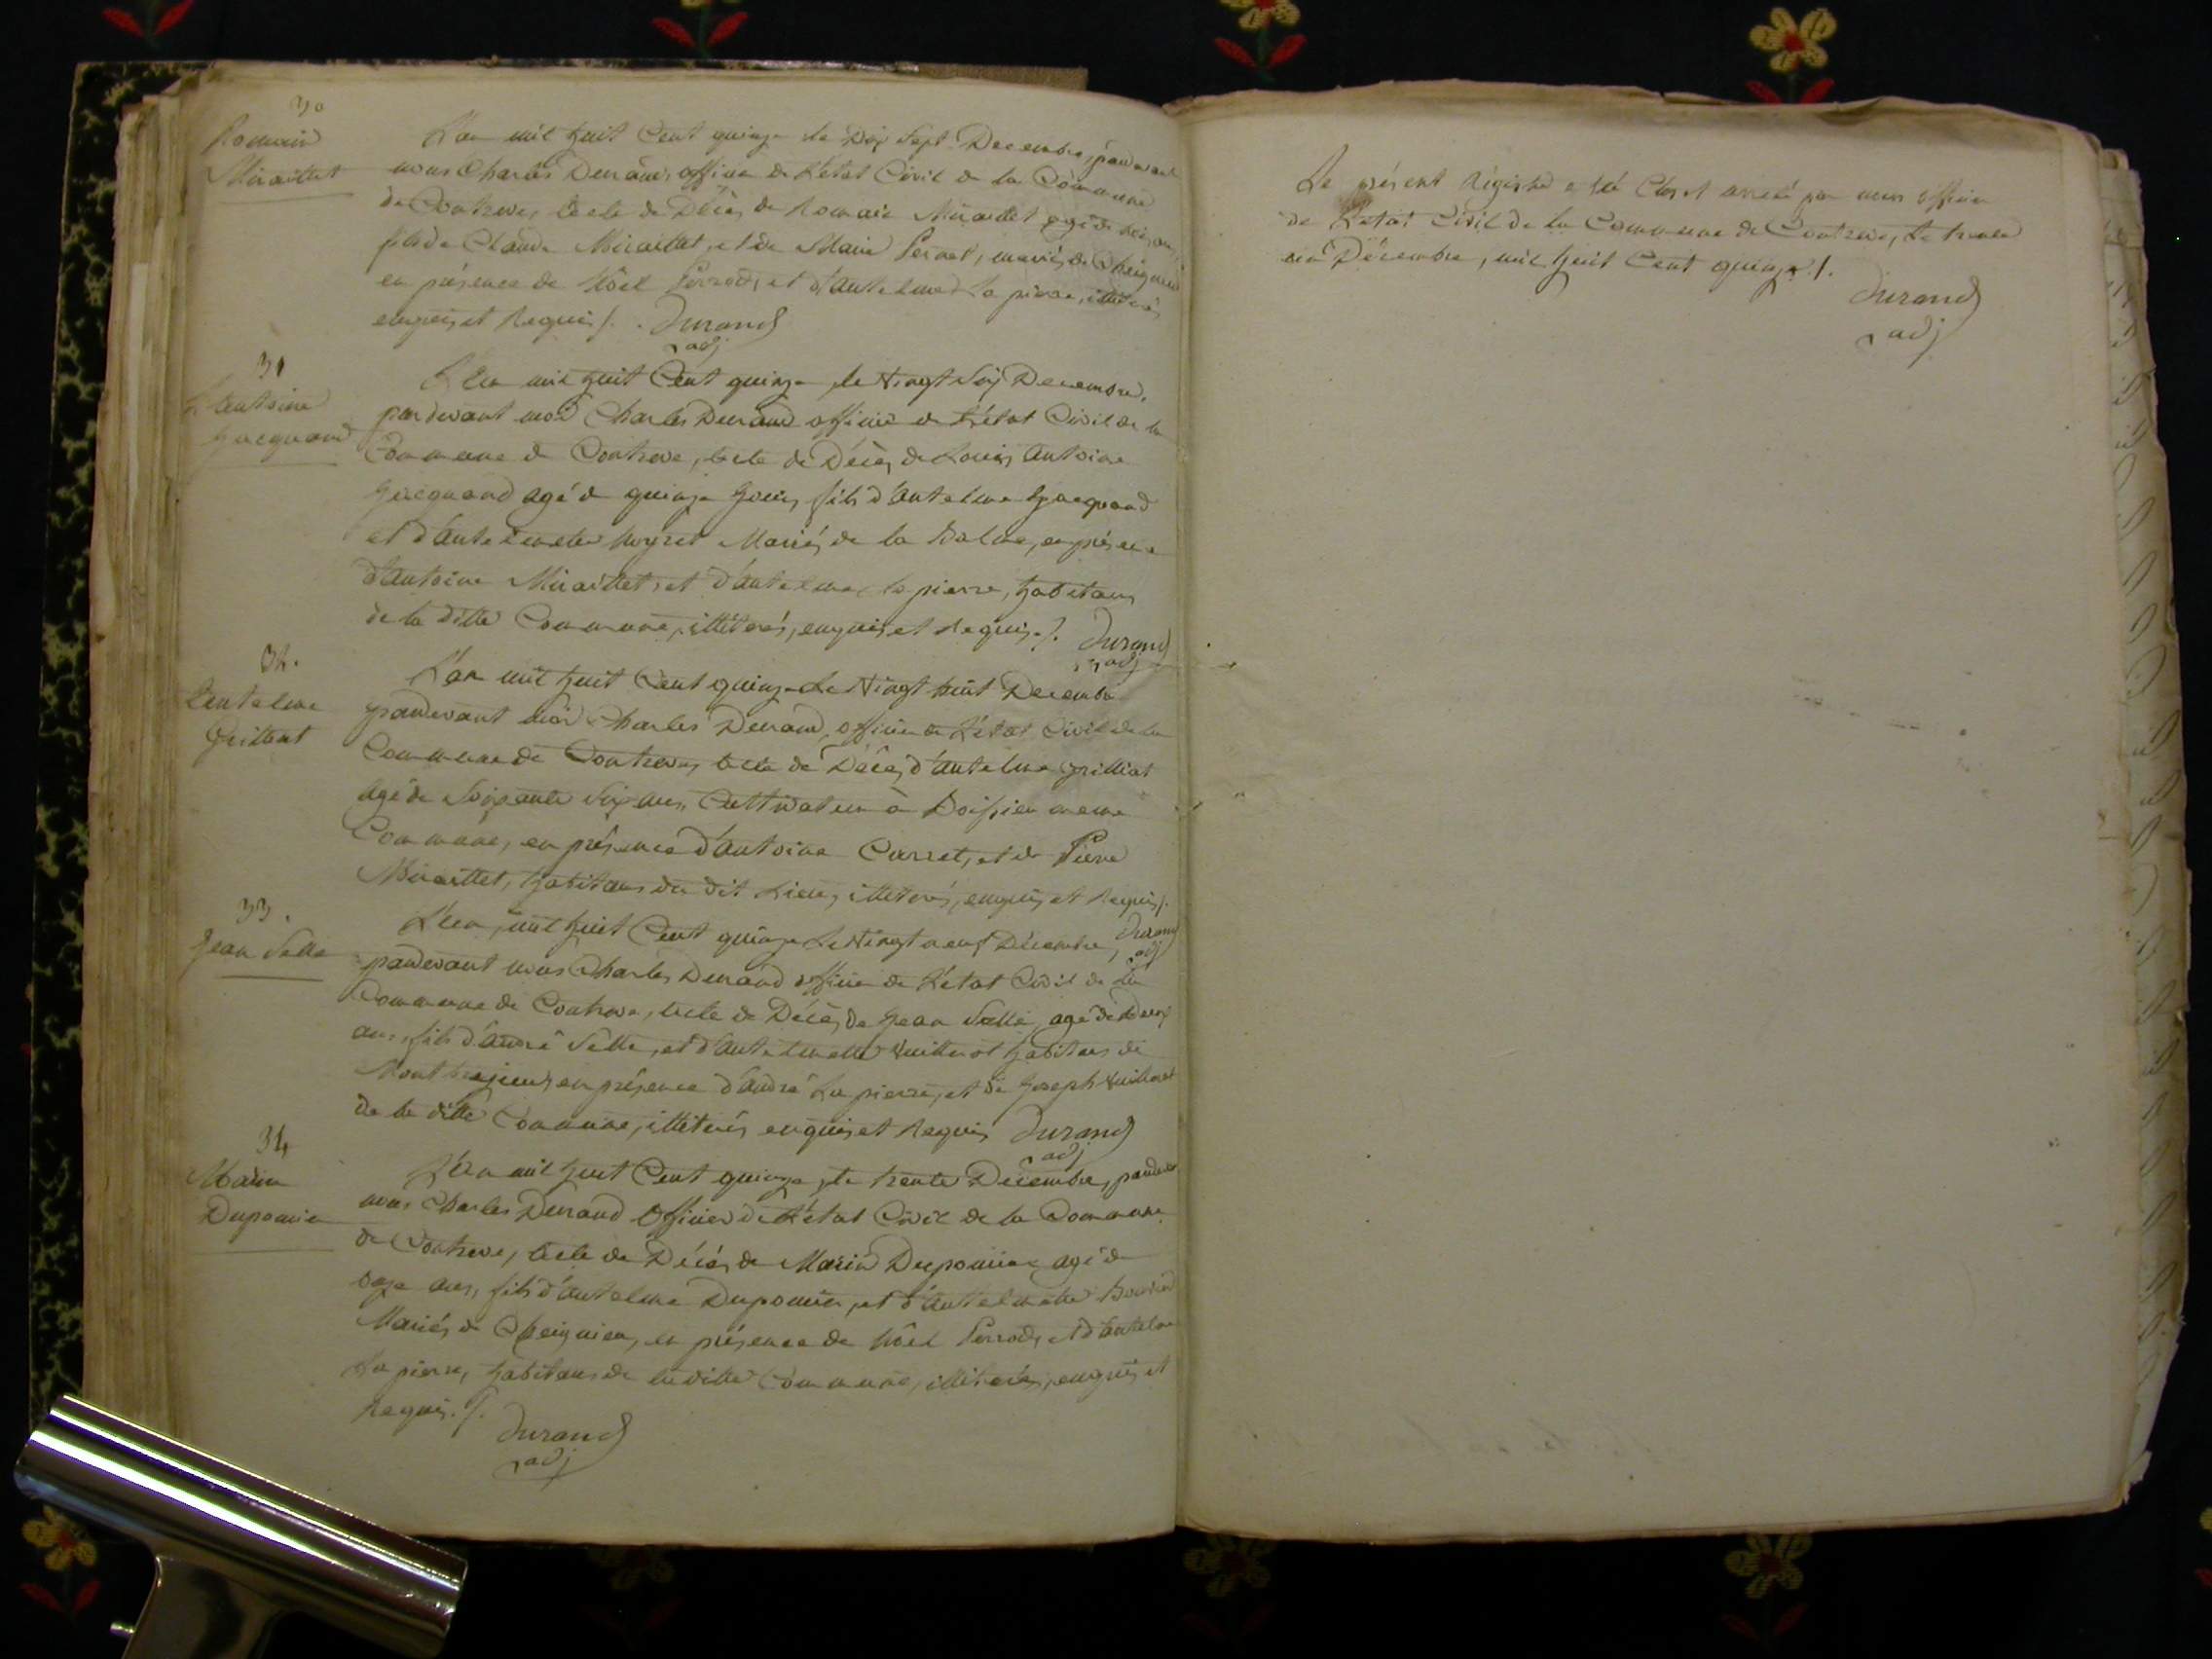 30
Romain
Miraillet
L'an mil huit Cent quinze le Dix Sept Decembre, pardevant
nous Charles Durand, officier de L'état Civil de la Commune
de Contrevoz, acte de Décès de Romain Miraillet agé de
fils de Claude Miraillet, et de Marie Pernet, mariés de Cheignieu
en présence de Noël Perrod, et d'antelme La pierre, illiterés
enquis et Requis /. Durand
adj
31
L. Antoine
Jacquand
L'an mil huit Cent quinze le Vingt Six Decembre,
pardevant moi Charles Durand officier de L'état Civil de la
Commune de Contrevoz, acte de Décès de Louis Antoine
Jacquand agé de quinze Jours, fils d'antelme Jacquand
et d'Antelmette Mariés de la Balme, en présence
d'antoine Miraillet, et d'antelme la pierre, habitans
de la ditte Commune, illiterés, enquis et Requis /. Durand
adj
32.
Antelme
Grilliat
L'an mil huit Cent quinze Le Vingt huit Decembre
pardevant moi Charles Durand, officier de L'état Civil de la
Commune de Contrevoz, acte de Décès d'antelme Grilliat
agé de Soixante Six ans, Cultivateur à Boissieu meme
Commune, en présence d'antoine Carret, et de Pierre
Miraillet, habitans du dit Lieu, illiterés, enquis et Requis /.
Durand
adj
33.
Jean Selle
L'an mil huit Cent quinze Le Vingt neuf Décembre,
pardevant nous Charles Durand officier de L'état Civil de la
Commune de Contrevoz, acte de Décès de Jean Selle, agé de Deux
ans, fils d'andré Selle, et d'Antelmette Vuillerot habitans de
en présence d'andré La pierre, et de Joseph Vuillerot
de la ditte Commune, illiterés enquis et Requis Durand
adj
34
Marin
Dupomier
L'an mil huit Cent quinze, le trente Décembre, pardevant
nous Charles Durand Officier de L'état Civil de la Commune
de Contrevoz, acte de Décès de Marin Dupomier agé de
onze ans, fils d'antelme Dupomier, et d'antelmette
Mariés de Cheignieu, en présence de Noël Perrod, et d'antelme
La pierre, habitans de la ditte Commune, illiterés, enquis et
Requis. /.
Durand
adj
Le présent Régistre a été Clos et arreté par nous officier
de L'état Civil de la Commune de Contrevoz, Le trente
un Décembre, mil huit Cent quinze /.
Durand
adj